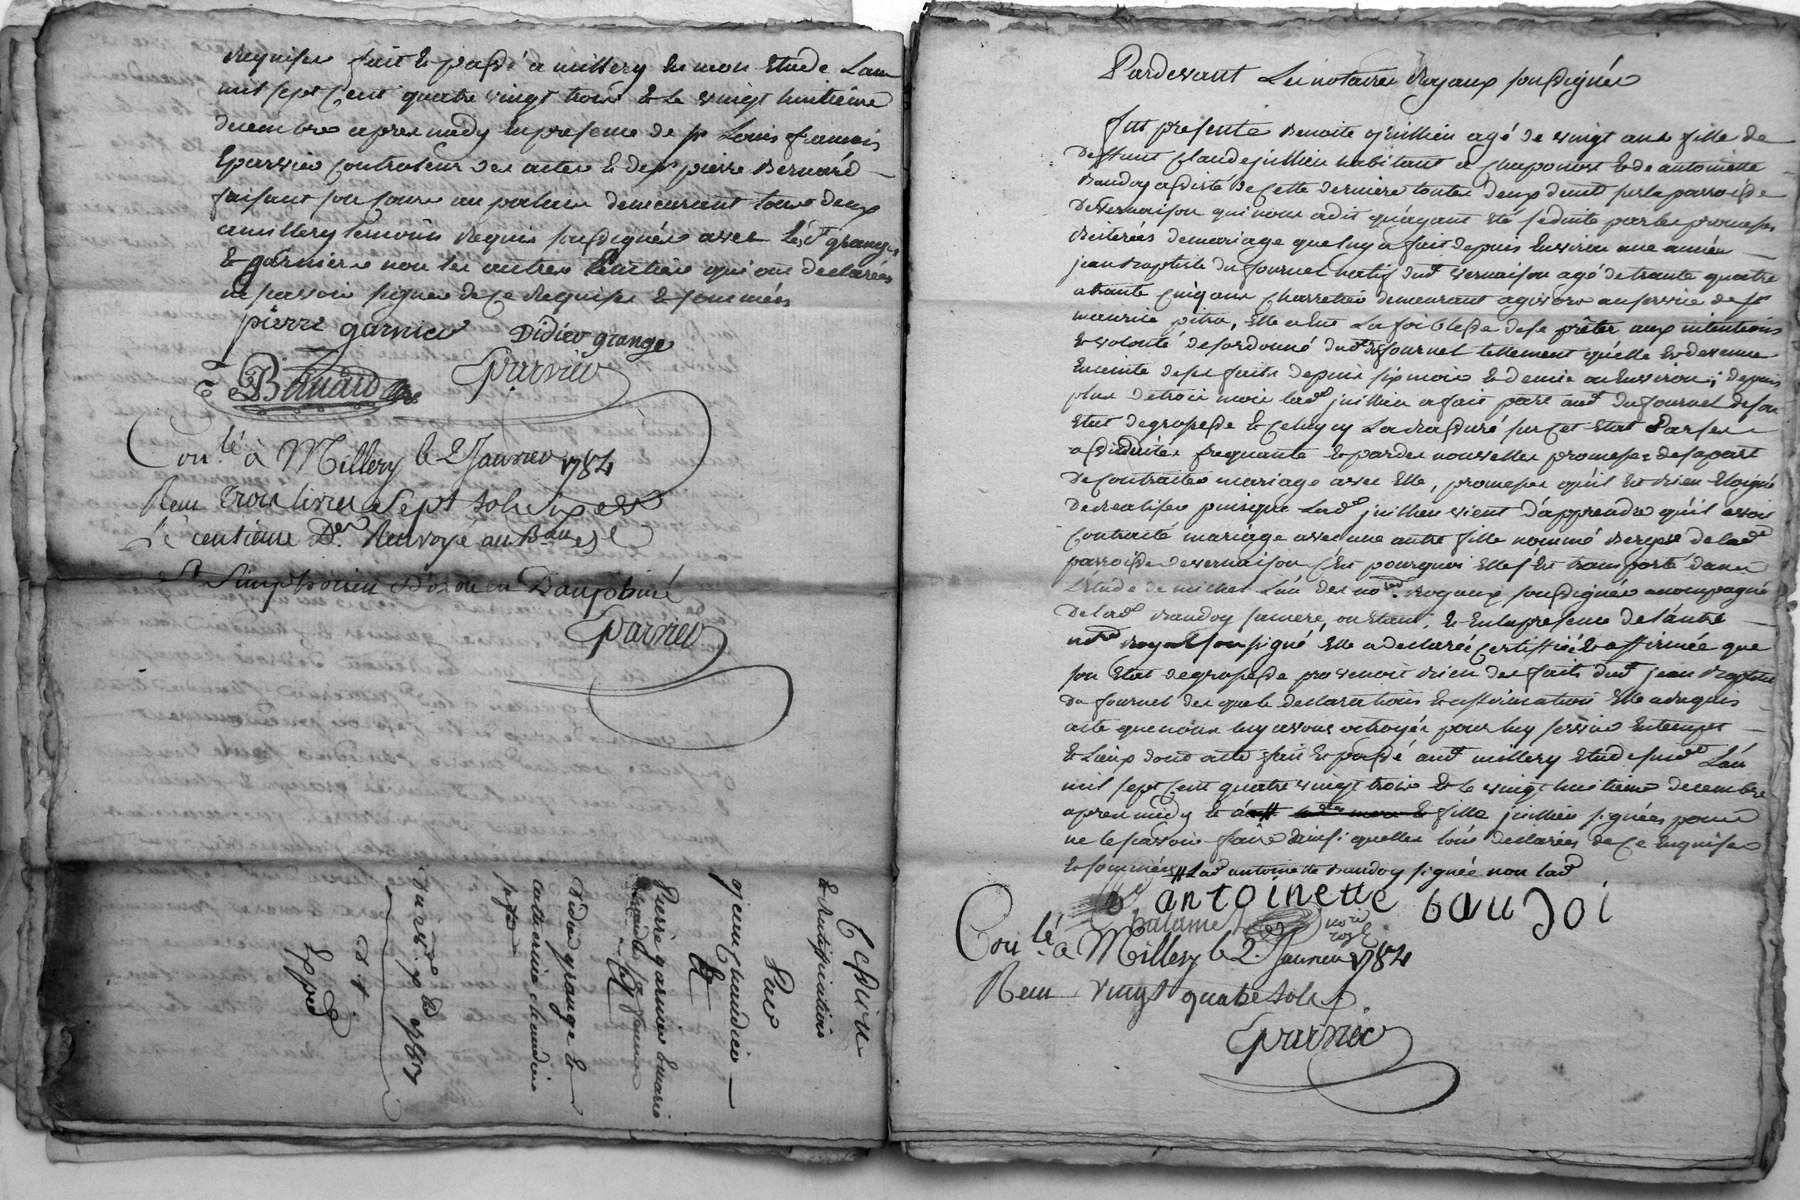 requise fait & passé a millery en mon Etude L'an
mil sept cent quatre vingt trois & le vingt huitieme
decembre apres midy En presence de sr Louis francois
Eparvier controleur des actes & de sr pierre Bernard
faisant son cours au palais demeurant tous deux
a millery temoins requis soussignés avec lesd. grange
& garnier non les autres parties qui ont declarées
ne scavoir signer de ce requises & sommées
pierre garnier Didier grange
Bernard Eparvier
Conlé à Millery le 2 Janvier 1784
Recu trois livres sept sols six ders
le centieme Der Renvoyé au Bau de
St Simphorien D'ozon en Dauphiné
Eparvier
Cession
& Ratification
Par
jean chaudier
à
Pierre garnier & marie
Didier grange &
catherine chaudier
du 28 xbre 1783
Exppé
Pardevant Les notaires Royaux soussignés
fut presente Benoite Jullien agé de vingt ans fille de
deffunt Claude jullien habitant a Chaponost & de antoinette
Baudoy assisté de cette derniere toutes deux de la parroisse
de vernaison qui nous a dit qu'ayant eté seduite par les promesses
reiterées de mariage que luy a fait depuis Environ une année
jean Baptiste du fournel natif dud. vernaison agé de trante quatre
a trante cinq ans charretier demeurant a givors au service de sr
maurice pitra, Elle a eut La foiblesse de se prêter aux intentions
& volonté desordonné dud. du fournel tellement qu'elle est devenue
Enceinte de ses faits depuis six mois & demie ou Environ; depuis
plus de trois mois lade jullien a fait part aud. du fournel de son
Etat de grossesse & celuy cy La rassuré sur cet Etat Par ses
assiduités frequante & par des nouvelles promesses de sa part
de contracter mariage avec Elle, promesses qu'il est bien Eloigné
de realiser puisque lade jullien vient d'apprendre qu'il avoit
contracté mariage avec une autre fille nommé Berger de lade
parroisse de vernaison c'est pourquoi Elle s'est transporté dans
L'Etude de michel L'un des nores Royaux soussignés accompagné
de lade Baudoy sa mere, ou Etant, & En la presence de l'autre
nore Royal soussigné Elle a declarée certiffiée & affirmée que
son Etat de grossesse provenoit bien des faits dud. jean Baptiste
du fournel des quels declarations & affirmation Elle a requis
acte que nous luy avons octroyée pour luy servir En temps
& Lieux dont acte fait & passé aud. millery Etude susde L'an
mil sept cent quatre vingt trois & le vingt huitieme decembre
apres midy & fille jullien signées pour
ne le scavoir faire ainsi quelles l'ont declarées de ce Enquises
& sommées lade antoinette Baudoy signée non lade
antoinette bauDoi
Conlé a Millery le 2 Janvier 1784
Recu vingt quatre sols
Eparvier